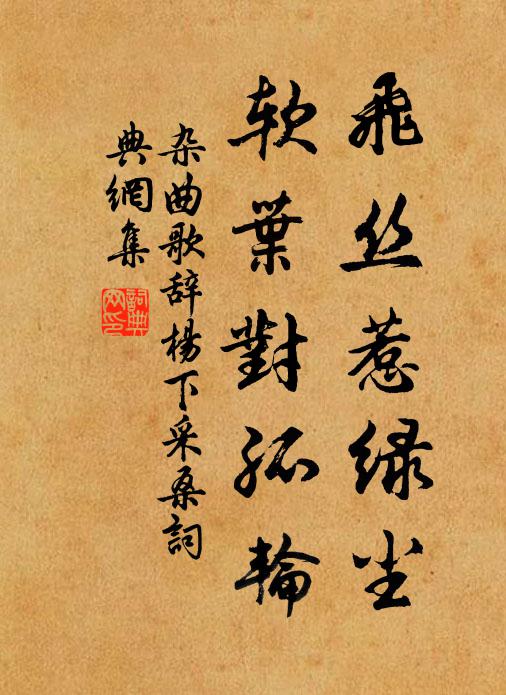 飛丝惹緑尘
软葉對孤輪
杂曲歌辞楊下采桑詞
典網集
詞典网印